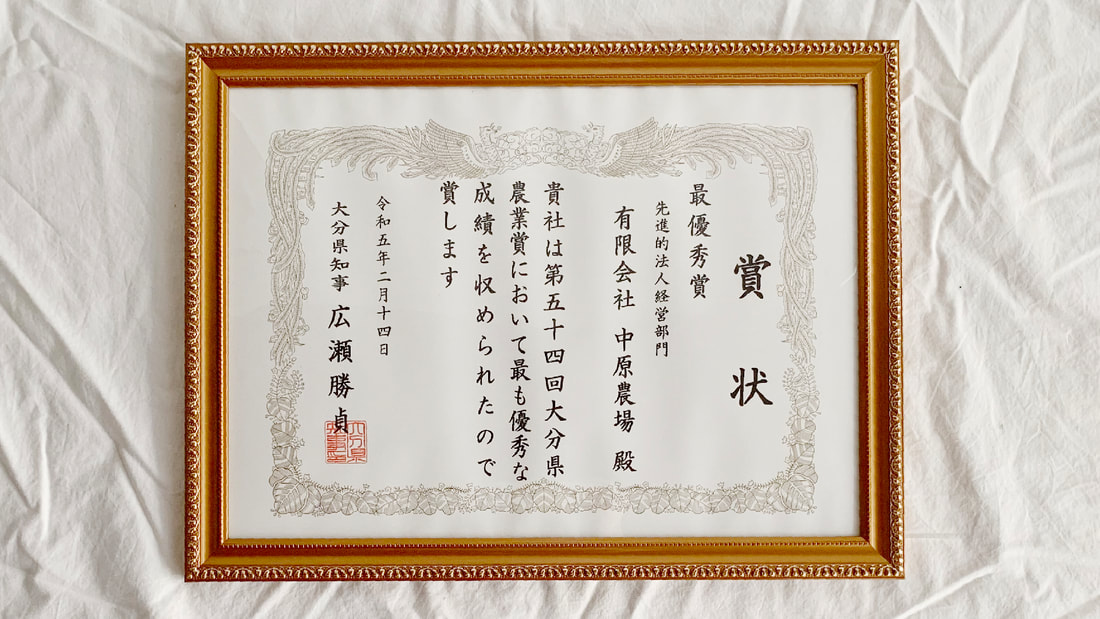 賞状
最優秀賞
先進的法人経営部門
有限会社 中原農場 殿
貴社は第五十四回大分県
農業賞において最も優秀な
成績を収められたので
賞します
令和五年二月十四日
大分県知事 広瀬勝貞
大分県
知事印